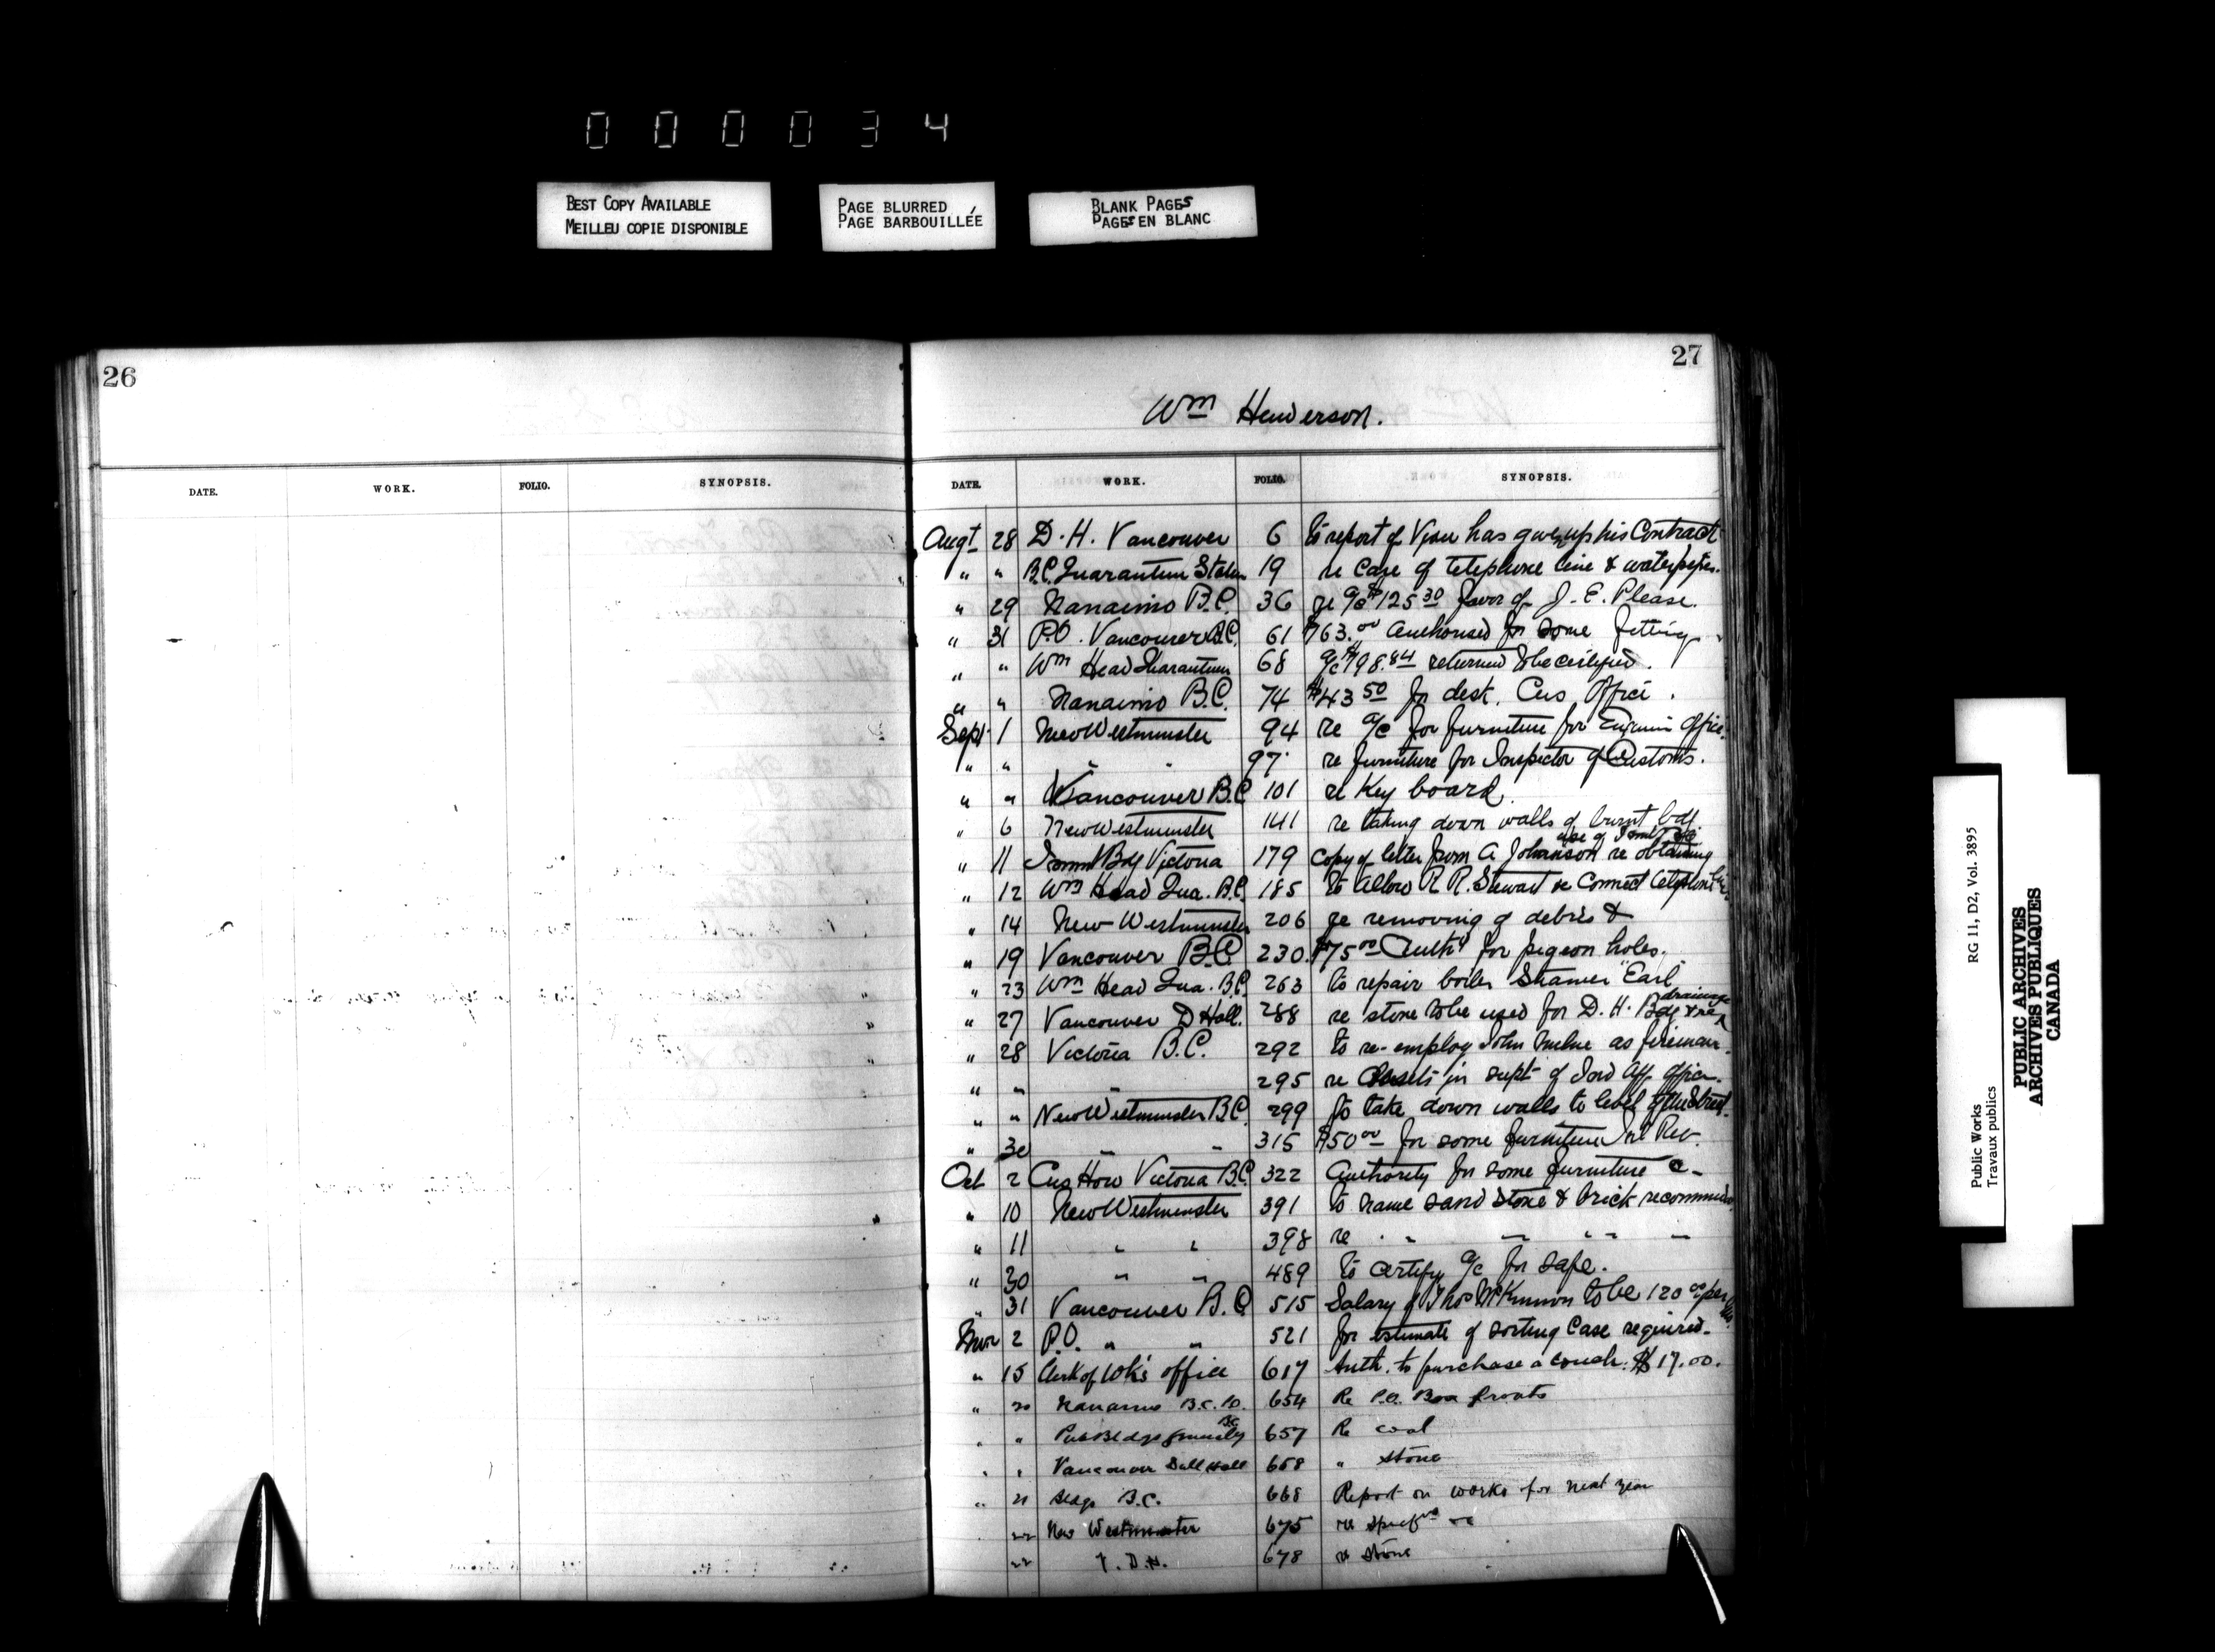 000034
BEST COPY AVAILABLE
MEILLEU COPIE DISPONIBLE
PAGE BLURRED
PAGE BARBOUILLÉE
BLANK PAGES
PAGES EN BLANC
26
DATE. WORK. FOLIO. SYNOPSIS.
27
Wm Henderson.
DATE. WORK. FOLIO. SYNOPSIS.
Augt 28 D.H. Vancouver 6 to report if has given up his Contract
" " B.C. Quarantine Station 19 re Care of telephone line & waterpipes.
" 29 Nanaimo B.C. 36 re a/c $125.30 favor of J.E. Please.
" 31 P.O. Vancouver B.C. 61 $763.00 authorised for some fitting
" " Wm Head Quarantine 68 a/c $198.84 returned to be certified.
" " Nanaimo B.C. 74 $43.50 for desk. Cus Office.
Sept 1 New Westminster 94 re a/c for furniture for Office.
" " " " 97 re furniture for Inspector of Customs.
" " Vancouver B.C. 101 re Key board.
" 6 New Westminster 141 re taking down walls of burnt bdg
" 11 Immt Bdg Victoria 179 copy of letter from A Johanson re obtaining use of Immt
" 12 Wm Head Qua. B.C. 185 to allow R.R. Stewart to Connect telephone
" 14 New Westminster 206 re removing of debris &
" 19 Vancouver B.C. 230. $75.00 Authy for pigeon holes.
" 23 Wm Head Qua. B.C. 263 to repair boiler Steamer "Earl"
" 27 Vancouver D Hall. 288 re stone to be used for D.H. Bdg & re drainage
" 28 Victoria B.C. 292 to re-employ John as fireman.
" " " 295 re Closets in supt of Ind Aff. Office.
" " New Westminster B.C. 299 to take down walls to level of the Street.
" 30 " " 315 $50.00 for some furniture Inl Rev.
Oct 2 Cus Hou Victoria B.C. 322 Authority for some furniture &c
" 10 New Westminster 391 to name sand stone & brick recommended
" 11 " " 398 re " " " "
" 30 " " 489 to certify a/c for safe.
" 31 Vancouver B.C. 515 Salary of Thos McKinnon to be 120.00 per
Nov 2 P.O. " " 521 for estimate of sorting Case required.
" 15 Clerk of Wk's office 617 Auth. to purchase a couch. $17.00.
" 20 Nanaimo B.C. P.O. 654 Re P.O. Box fronts
" " Pub Bldgs generally B.C. 657 Re coal
" " Vancouver Drill Hall 658 " stone
" 21 Bldgs B.C. 668 Report on works for next year
22 New Westminster 675 re
22 V.D.H. 678 re stone
Public Works
Travaux publics
RG 11, D2, Vol. 3895
PUBLIC ARCHIVES
ARCHIVES PUBLIQUES
CANADA